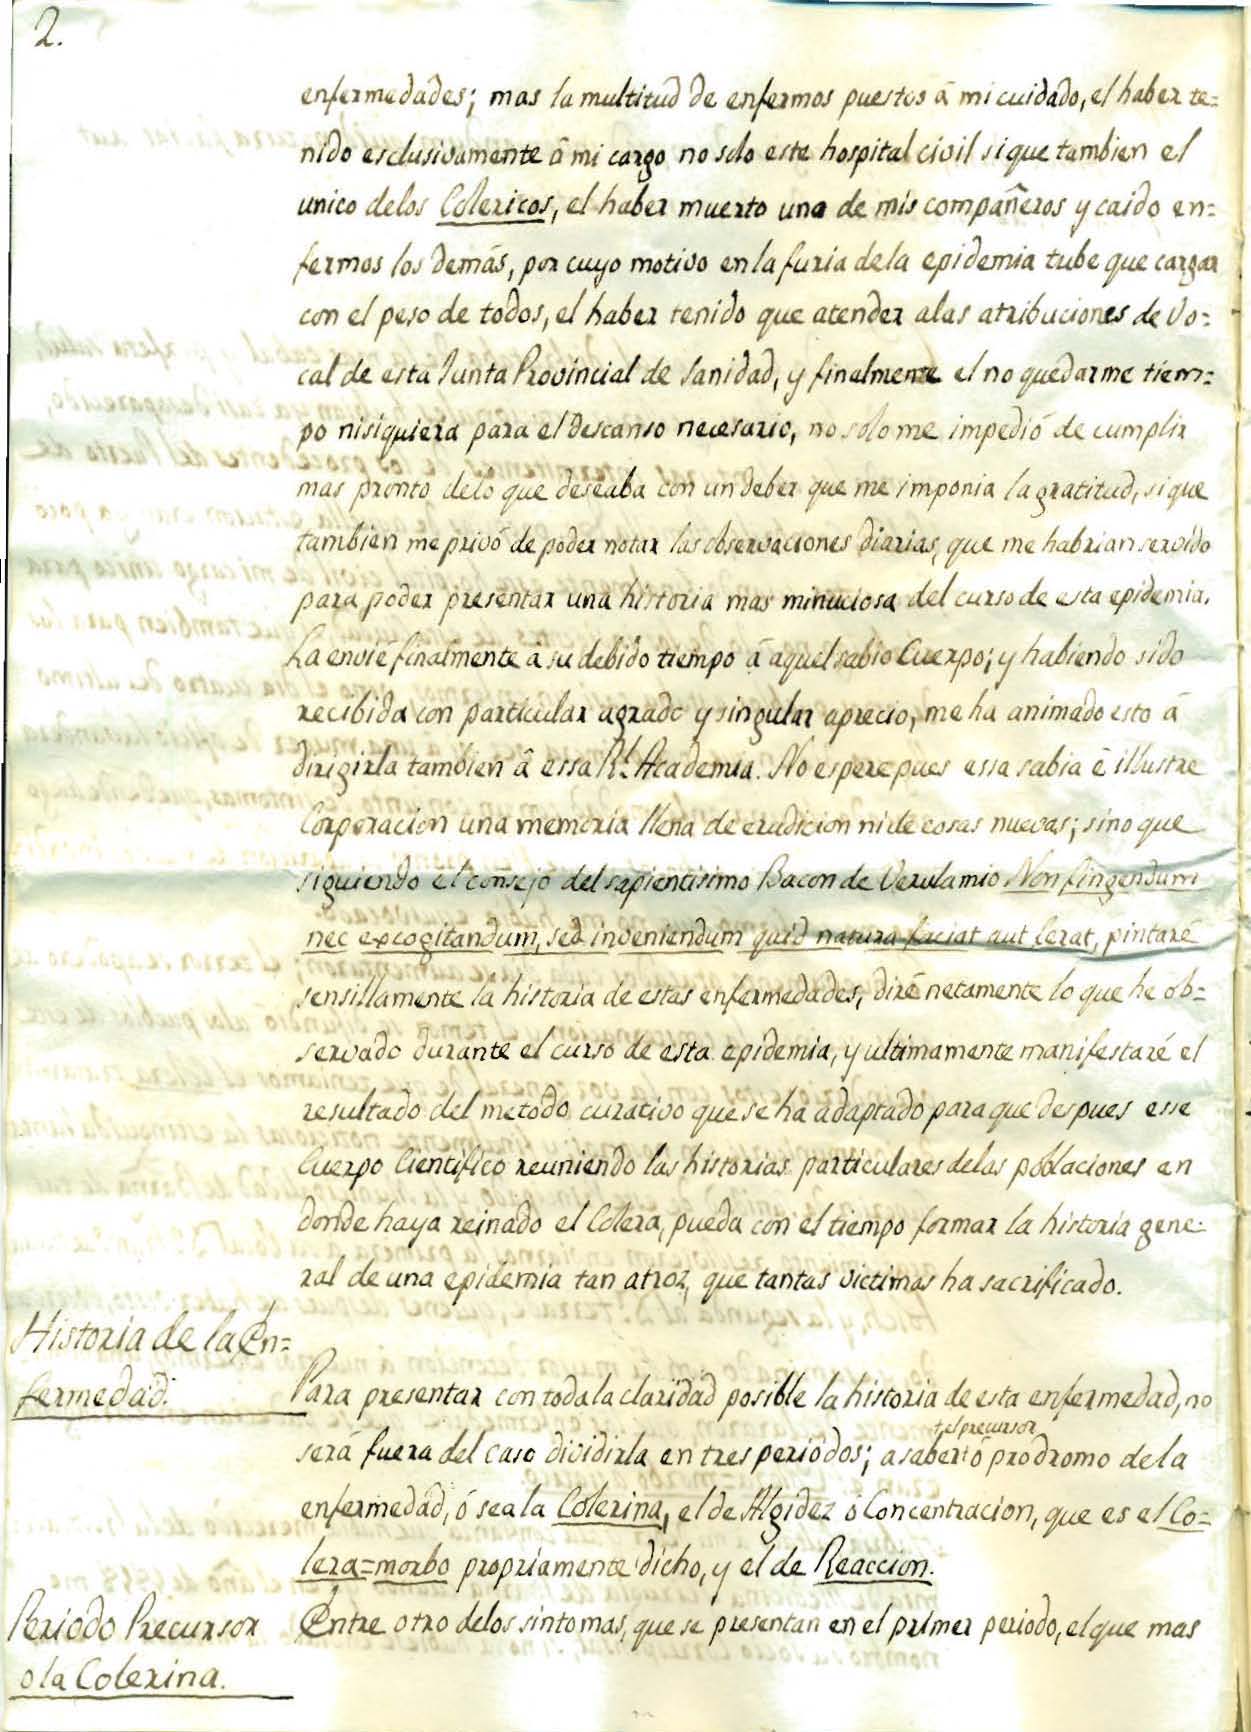 2.
enfermedades; mas la multitud de enfermos puestos â mi cuidado, el haber te=
nido esclusivamente â mi cargo no solo este hospital civil si que tambien el
unico delos Colericos, el haber muerto uno de mis compañeros y caido en=
fermos los demás, por cuyo motivo en la furia dela epidemia tube que cargar
con el peso de todos, el haber tenido que atender alas atribuciones de Vo=
cal de esta Junta Provincial de Sanidad, y finalmente el no quedarme tiem=
po nisiquiera para el descanso necesario, no solo me impedió de cumplir
mas pronto delo que deseaba con un deber que me imponia la gratitud, si que
tambien me privó de poder notar las observaciones diarias, que me habrian servido
para poder presentar una historia mas minuciosa del curso de esta epidemia.
La envié finalmente â su debido tiempo â aquel sabio Cuerpo; y habiendo sido
recibida con particular agrado y singular aprecio, me ha animado esto â
dirigirla tambien â essa Rl. Academia. No espere pues essa sabia ê illustre
Corporacion una memoria llena de erudicion ni de cosas nuevas; sino que
siguiendo el consejo del sapientisimo Bacon de Verulamio Non fingendum
nec excogitandum, sed inveniendum quid natura faciat aut ferat, pintaré
sensillamente la historia de estas enfermedades, diré netamente lo que he ob=
servado durante el curso de esta epidemia, y ultimamente manifestaré el
resultado del metodo curativo que se ha adaptado para que despues esse
Cuerpo Cientifico reuniendo las historias particulares delas poblaciones en
donde haya reinado el Colera, pueda con el tiempo formar la historia gene=
ral de una epidemia tan atroz, que tantas victimas ha sacrificado.
Historia de la En=
fermedad.
Para presentar con toda la claridad posible la historia de esta enfermedad, no
será fuera del caso dividirla en tres periódos; a saber + ó prodromo dela
+ el precursor
enfermedad, ó sea la Colerina, el de Algidez ó Concentracion, que es el Co=
lera=morbo propriamente dicho, y el de Reaccion.
Periodo Precursor
o la Colerina.
Entre otro delos sintomas, que se presentan en el primer periodo, el que mas